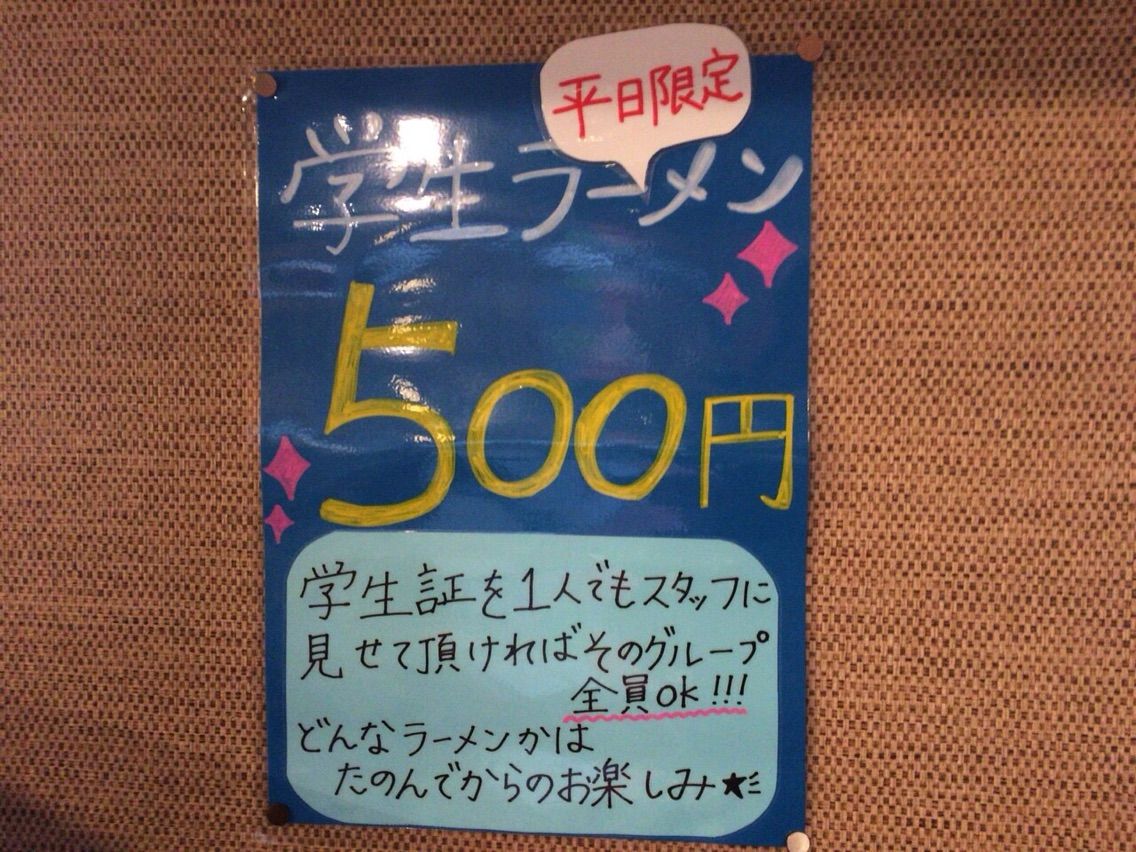 平日限定
学生ラーメン
500円
学生証を1人でもスタッフに
見せて頂ければそのグループ
全員ok!!!
どんなラーメンかは
たのんでからのお楽しみ★